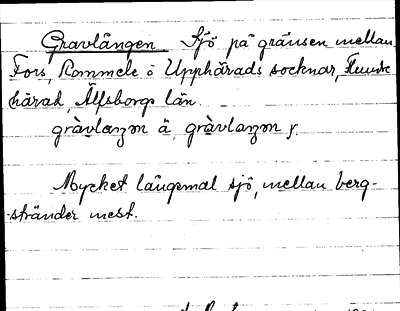 Gravlången Sjö på gränsen mellan
Fors, Rommele o Upphärads socknar, Flundre
härad, Älfsborgs län.
gràvlaŋən ä, gràvlaŋən r.
Mycket långsmal sjö, mellan berg-
stränder mest.